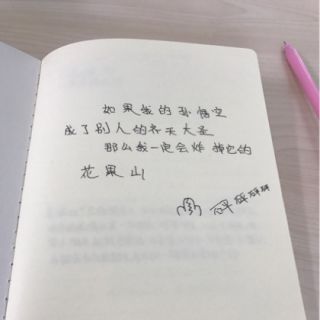 如果我的孙悟空
成了别人的齐天大圣
那么我一定会炸掉它的
花果山
砰砰砰砰